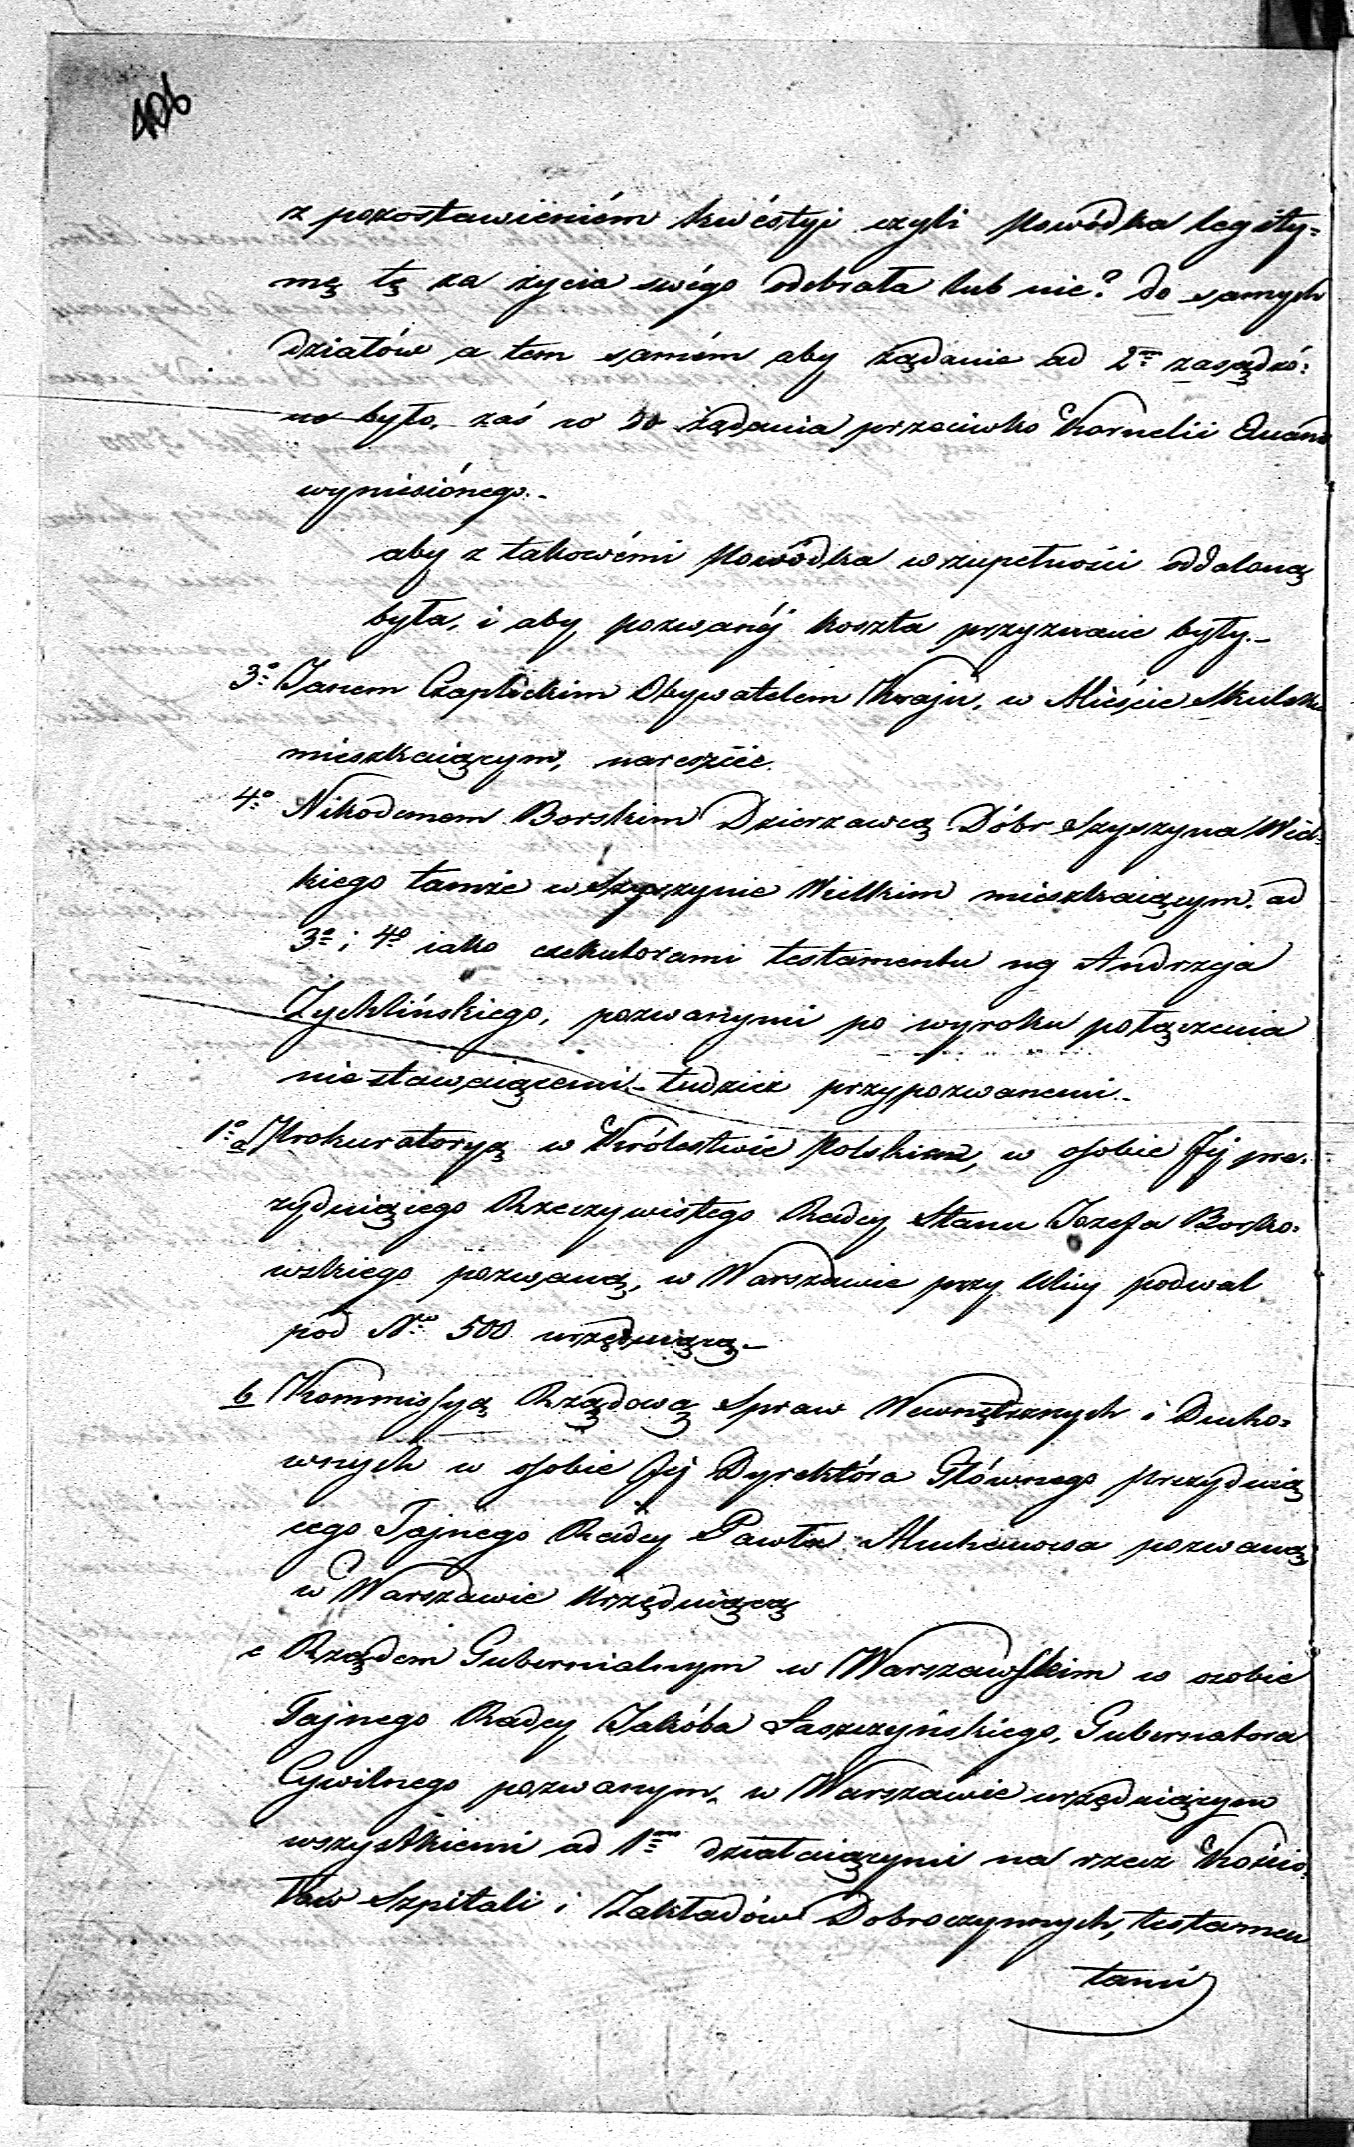 406
z pozostawieniém kwéstyi czyli Powódka legity=
mę tę za życia swégo odebrała lub nie? do samych
działów a tem samém aby żądanie ad 2m zasądzó=
no było, zaś co do żądania przeciwko Kornelii
wyniesiónego.-
aby z takowémi Powódka w zupełności oddaloną
była, i aby pozwanéj koszta przyznane były.-
3o Janem Czaplickim Obywatelem Kraju, w Mieście Skulsku
mieszkaiącym, nareszcie.
4o Nikodemem Borskim Dzierzawcą Dóbr Szyszyna Wiel=
kiego tamże w Szyszynie Wielkim mieszkaiącym. ad
3o i 4o iako exekutorami testamentu ng Andrzeja
Zychlińskiego, pozwanymi po wyroku połączenia
niestawaiącemi - tudzież przypozwanemi.-
1o a Prokuratoryą w Królestwie Polskiem, w osobie Jéj pre=
zyduiącego Rzeczywistego Radcy Stanu Jozefa
wskiego pozwaną, w Warszawie przy Ulicy podwal
pod No 500 urzęduiącą.-
b Kommissyą Rządową Spraw Wewnętrznych i Ducho=
wnych w osobie Jéj Dyrektóra Głównego prezyduią
cego Tajnego Radcy Pawła Muchanowa pozwaną
w Warszawie Urzęduiącą
c Rządem Gubernialnym w Warszawskim w osobie
Tajnego Radcy Jakóba Łaszczyńskiego, Gubernatora
Cywilnego pozwanym, w Warszawie urzęduiącym
wszystkiemi ad 1m działaiącymi na rzecz Kościo=
łów Szpitali i Zakładów Dobroczynnych, testamen
tami